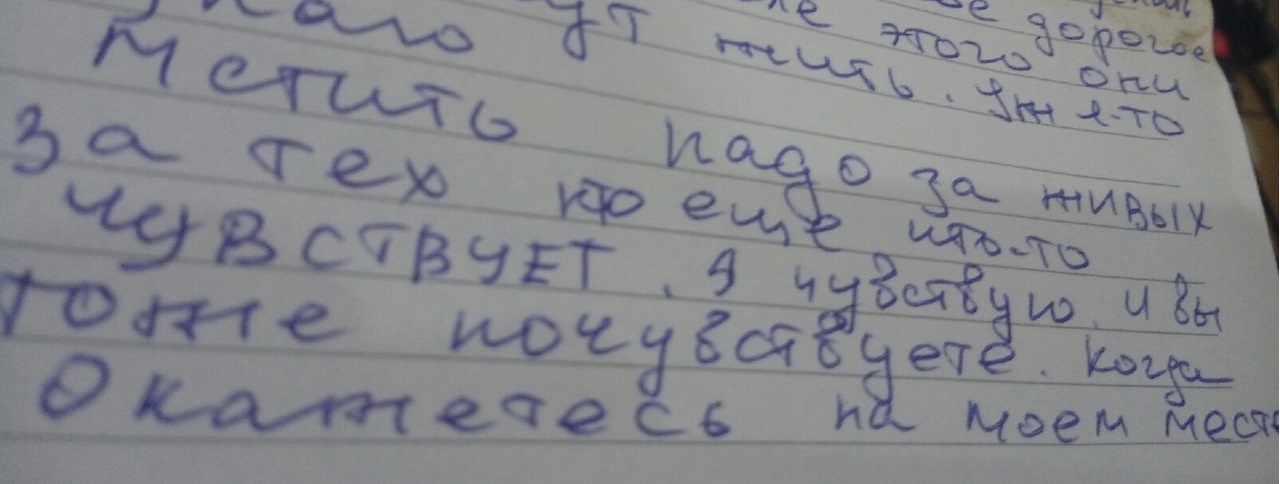 дорогое
этого они
жить.
Мстить надо за живых
за тех кто еще что-то
чувствует. Я чувствую и вы
тоже почувствуете. когда
Окажетесь на моем месте